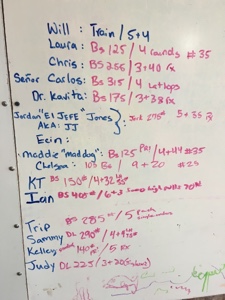 Will : Train / 5+4
Laura: BS 125 / 4 rounds #35
Chris: BS 255 / 3+40 rx
Señor Carlos: BS 315 / 4
Dr. Kavita: BS 175 / 3+38 rx
Jordan "El JEFE" Jones
AKA: JJ
5 + 35
Erin:
Maddie "maddog": BS 125 / 4+44 #35
Chelsea: 105 BS / 9 + 20 #25
KT BS 150# / 4+32
Ian BS 405# / 6+3
Trip BS 285 / 5
Sammy DL 290# / 4+9
Kelley 140# / 5 rx
Judy DL 225 / 3+20